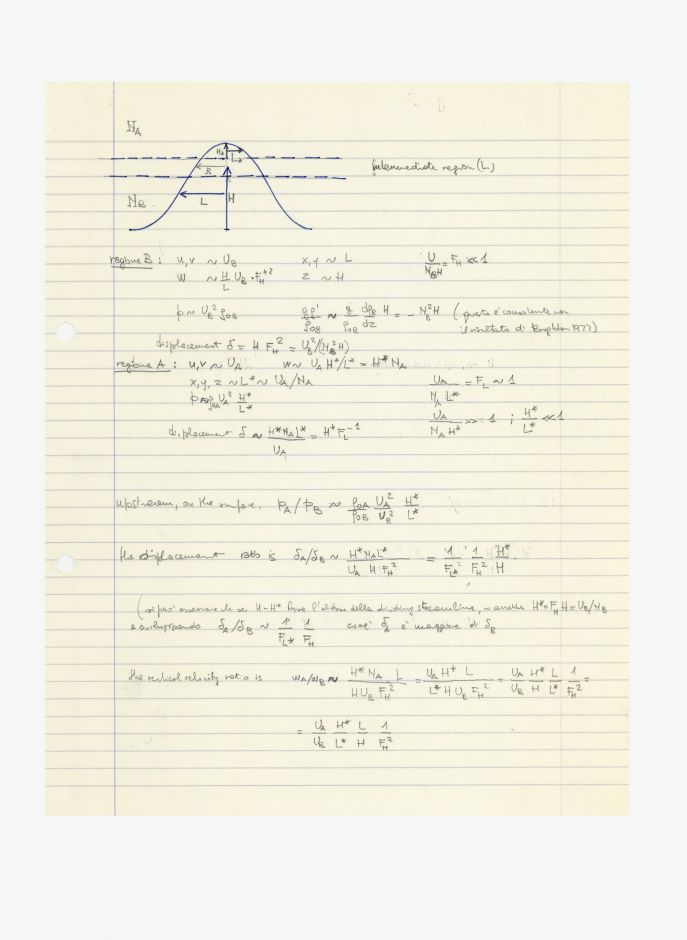 N_A
H* L*
R
intermediate region (L)
N_B L H
regione B : u,v ~ U_B x,y ~ L U/(N_B H) = F_H ≪ 1
w ~ H/L U_B · F_H^{+2} z ~ H
p ~ U_B^2 ρ_{0B} gρ'/ρ_{0B} ~ g/ρ_{0B} dρ_B/dz H = - N_B^2 H (questo è consistente con
il risultato di 1977)
displacement δ = H F_H^2 = U_B^2/(N_B^2 H)
regione A : u,v ~ U_A w ~ U_A H*/L* = H* N_A
x,y,z ~ L* ~ U_A/N_A U_A/(N_A L*) = F_L ~ 1
p ~ ρ_{0A} U_A^2 H*/L* U_A/(N_A H*) ≫ 1 ; H*/L* ≪ 1
displacement δ ~ H* N_A L*/U_A = H* F_L^{-1}
upstream, on the surface, P_A/P_B ~ ρ_{0A}/ρ_{0B} U_A^2/U_B^2 H*/L*
the displacement ratio is δ_A/δ_B ~ H* N_A L*/(U_A H F_H^2) = 1/F_{L*} 1/F_H^2 H*/H .
(si può osservare che se H-H* fosse l'altezza della dividing streamline, H* = F_H H = U_B/N_B
e sviluppando δ_A/δ_B ~ 1/F_{L*} 1/F_H cioè δ_A è maggiore di δ_B
the vertical velocity ratio is w_A/w_B ~ H* N_A L/(H U_B F_H^2) = U_A H* L/(L* H U_B F_H^2) = U_A/U_B H*/H L/L* 1/F_H^2 =
= U_A/U_B H*/L* L/H 1/F_H^2